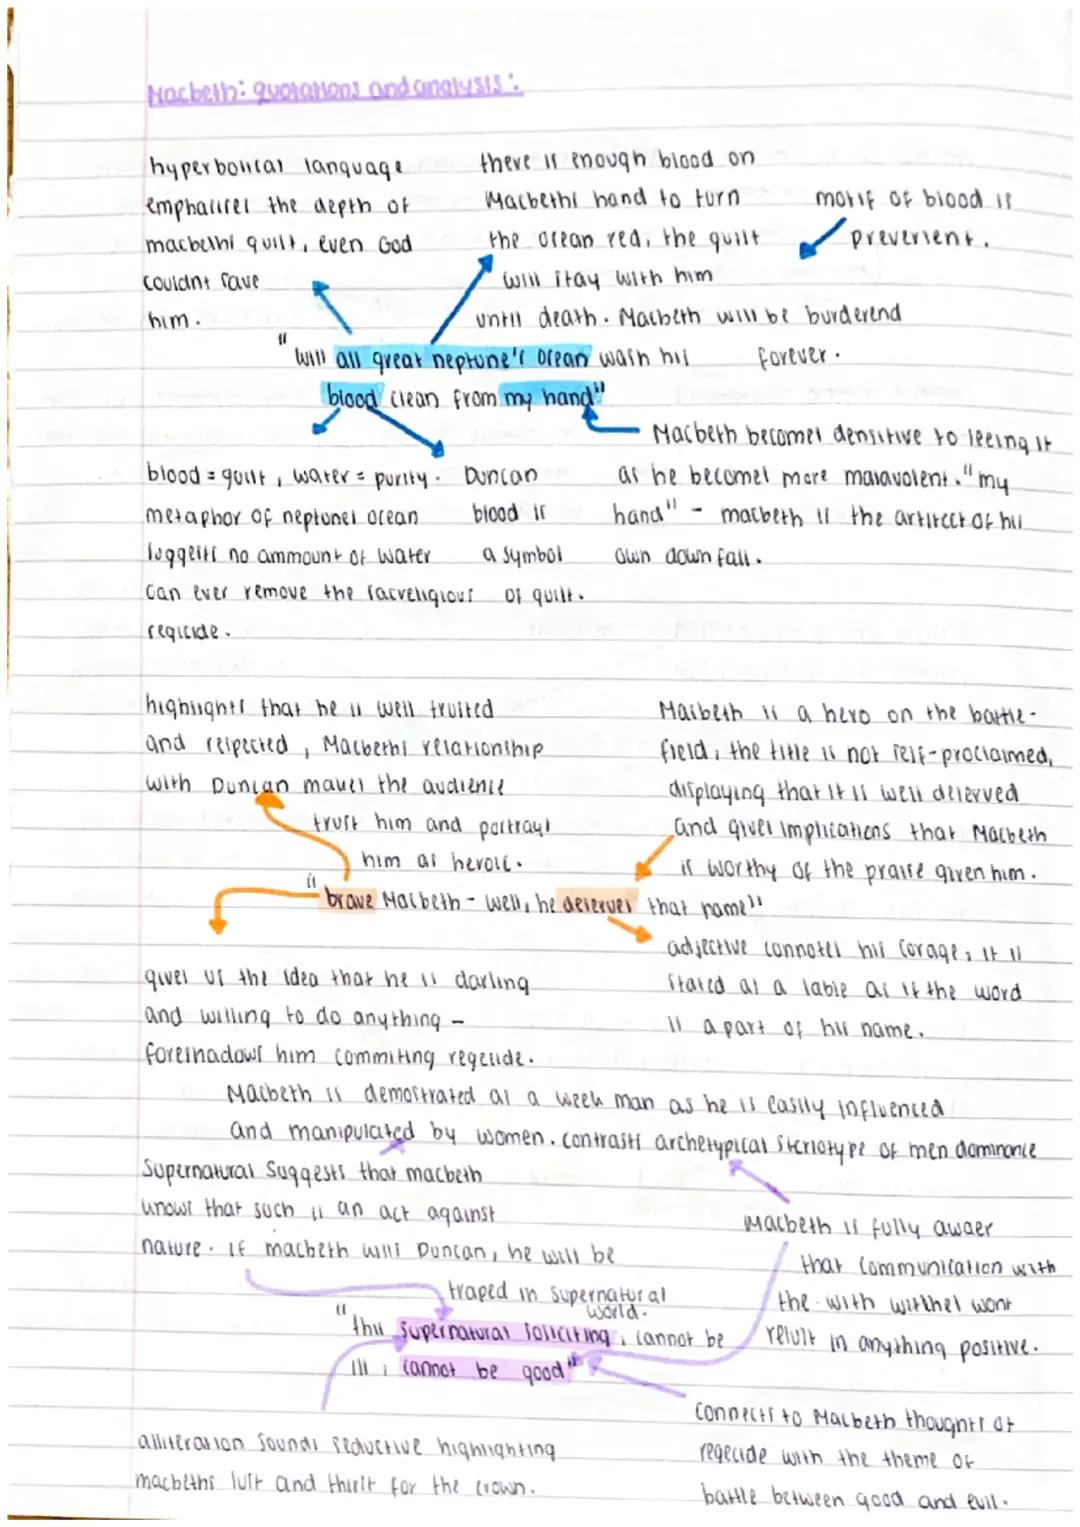 Macbeth: quotations and analysis:
hyperbolical language
emphasises the depth of
macbeths guilt, even God
couldnt save
him.
there is enough blood on
Macbeths hand to turn
the ocean red, the guilt
will stay with him
until death. Macbeth will be burderend
forever.
motif of blood is
preverient.
"will all great neptune's ocean wash his
blood clean from my hand"
Macbeth becomes densitive to seeing it
as he becomes more malavolent. "my
hand" - macbeth is the artitect of his
own downfall.
blood = guilt, water = purity.
metaphor of neptunes ocean
suggests no ammount of water
can ever remove the sacreligious
regicide.
Duncan
blood is
a symbol
of guilt.
highlights that he is well trusted
and respected, Macbeths relationship
with Duncan makes the audience
trust him and portrays
him as heroic.
Macbeth is a hero on the battle-
field, the title is not self-proclaimed,
displaying that it is well deserved
and gives implications that Macbeth
is worthy of the praise given him.
"brave Macbeth - well, he deserves that name"
adjective connotes his corage, it is
stated as a lable as if the word
is a part of his name.
gives us the idea that he is darling
and willing to do anything -
foreshadows him commiting regecide.
Macbeth is demostrated as a week man as he is easily influenced
and manipulated by women. contrasts archetypical steriotype of men dominance
Supernatural suggests that macbeth
knows that such is an act against
nature. if macbeth kills Duncan, he will be
traped in supernatural
world.
Macbeth is fully awaer
that communication with
the with witches wont
result in anything positive.
"this supernatural soliciting, cannot be
ill, cannot be good"
connects to Macbeth thoughts of
regecide with the theme of
battle between good and evil.
alliteration sounds seductive highlighting
macbeths lust and thirst for the crown.